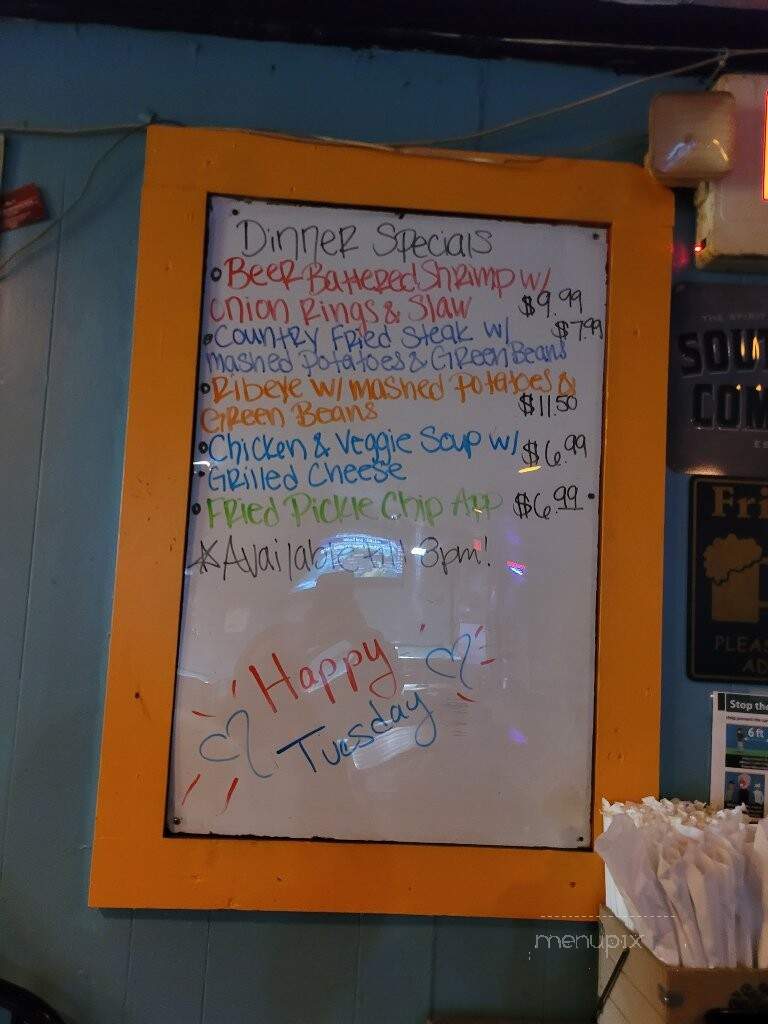 Dinner Specials
• Beer Battered Shrimp w/
Onion Rings & Slaw $9.99
• Country Fried Steak w/ $7.99
mashed potatoes & Green Beans
• Ribeye w/ mashed potatoes &
Green Beans $11.50
• Chicken & Veggie Soup w/ $6.99
Grilled Cheese
• Fried Pickle Chip App $6.99
*Available till 8pm!
Happy
Tuesday
THE SPIRIT
SOU
COM
Fri
PLEAS
AD
Stop the
6 ft
menupix